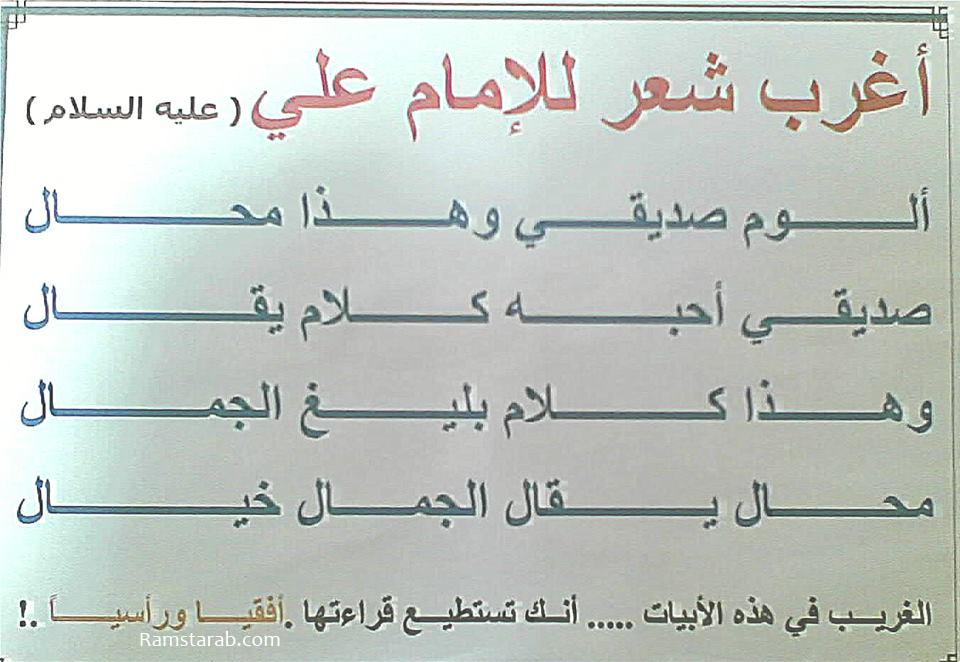 أغرب شعر للإمام علي ( عليه السلام )
ألـــوم صديقـــي وهـــذا محـــال
صديقـــي أحبـــه كـــلام يقـــال
وهـــذا كـــلام بليـــغ الجمـــال
محـــال يـــقال الجمـــال خيـــال
الغريـب في هذه الأبيات ..... أنـك تستطيـع قراءتها .أفقيـــا ورأسيـــاً .!
Ramstarab.com